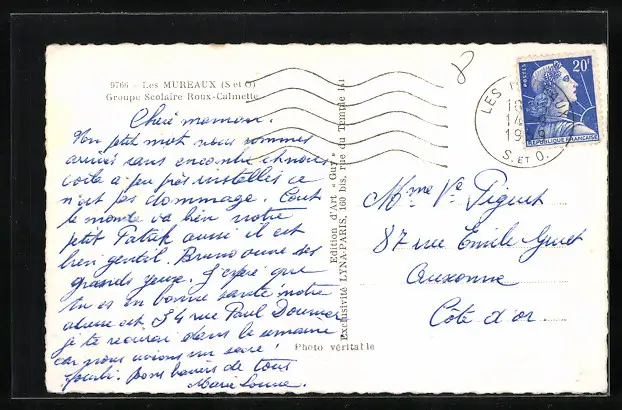 9766 - Les MUREAUX (S et O)
Groupe Scolaire Roux-Calmette
Chère maman.
Un petit mot nous sommes
arrivés sans encombre et nous
voila a peu près installés ce
n'est pas dommage. Tout
le monde va bien notre
petit Patrik aussi il est
bien gentil. Bruno ouvre des
grands yeux. J'espère que
tu es en bonne santé notre
adresse est 34 rue Paul Doumer
je te recevrai dans la semaine
car nous avions un sacré
fourbi. bons baisers de tous
Marie Louise.
Edition d'Art « Guy »
Exclusivité LYNA-PARIS, 160 bis, rue du Temple
Photo véritable
LES MUREAUX
18
14
S. ET O.
POSTES
20F
REPUBLIQUE FRANÇAISE
Mme Ve Piguet
87 rue Emile
Auxonne
Côte d'or